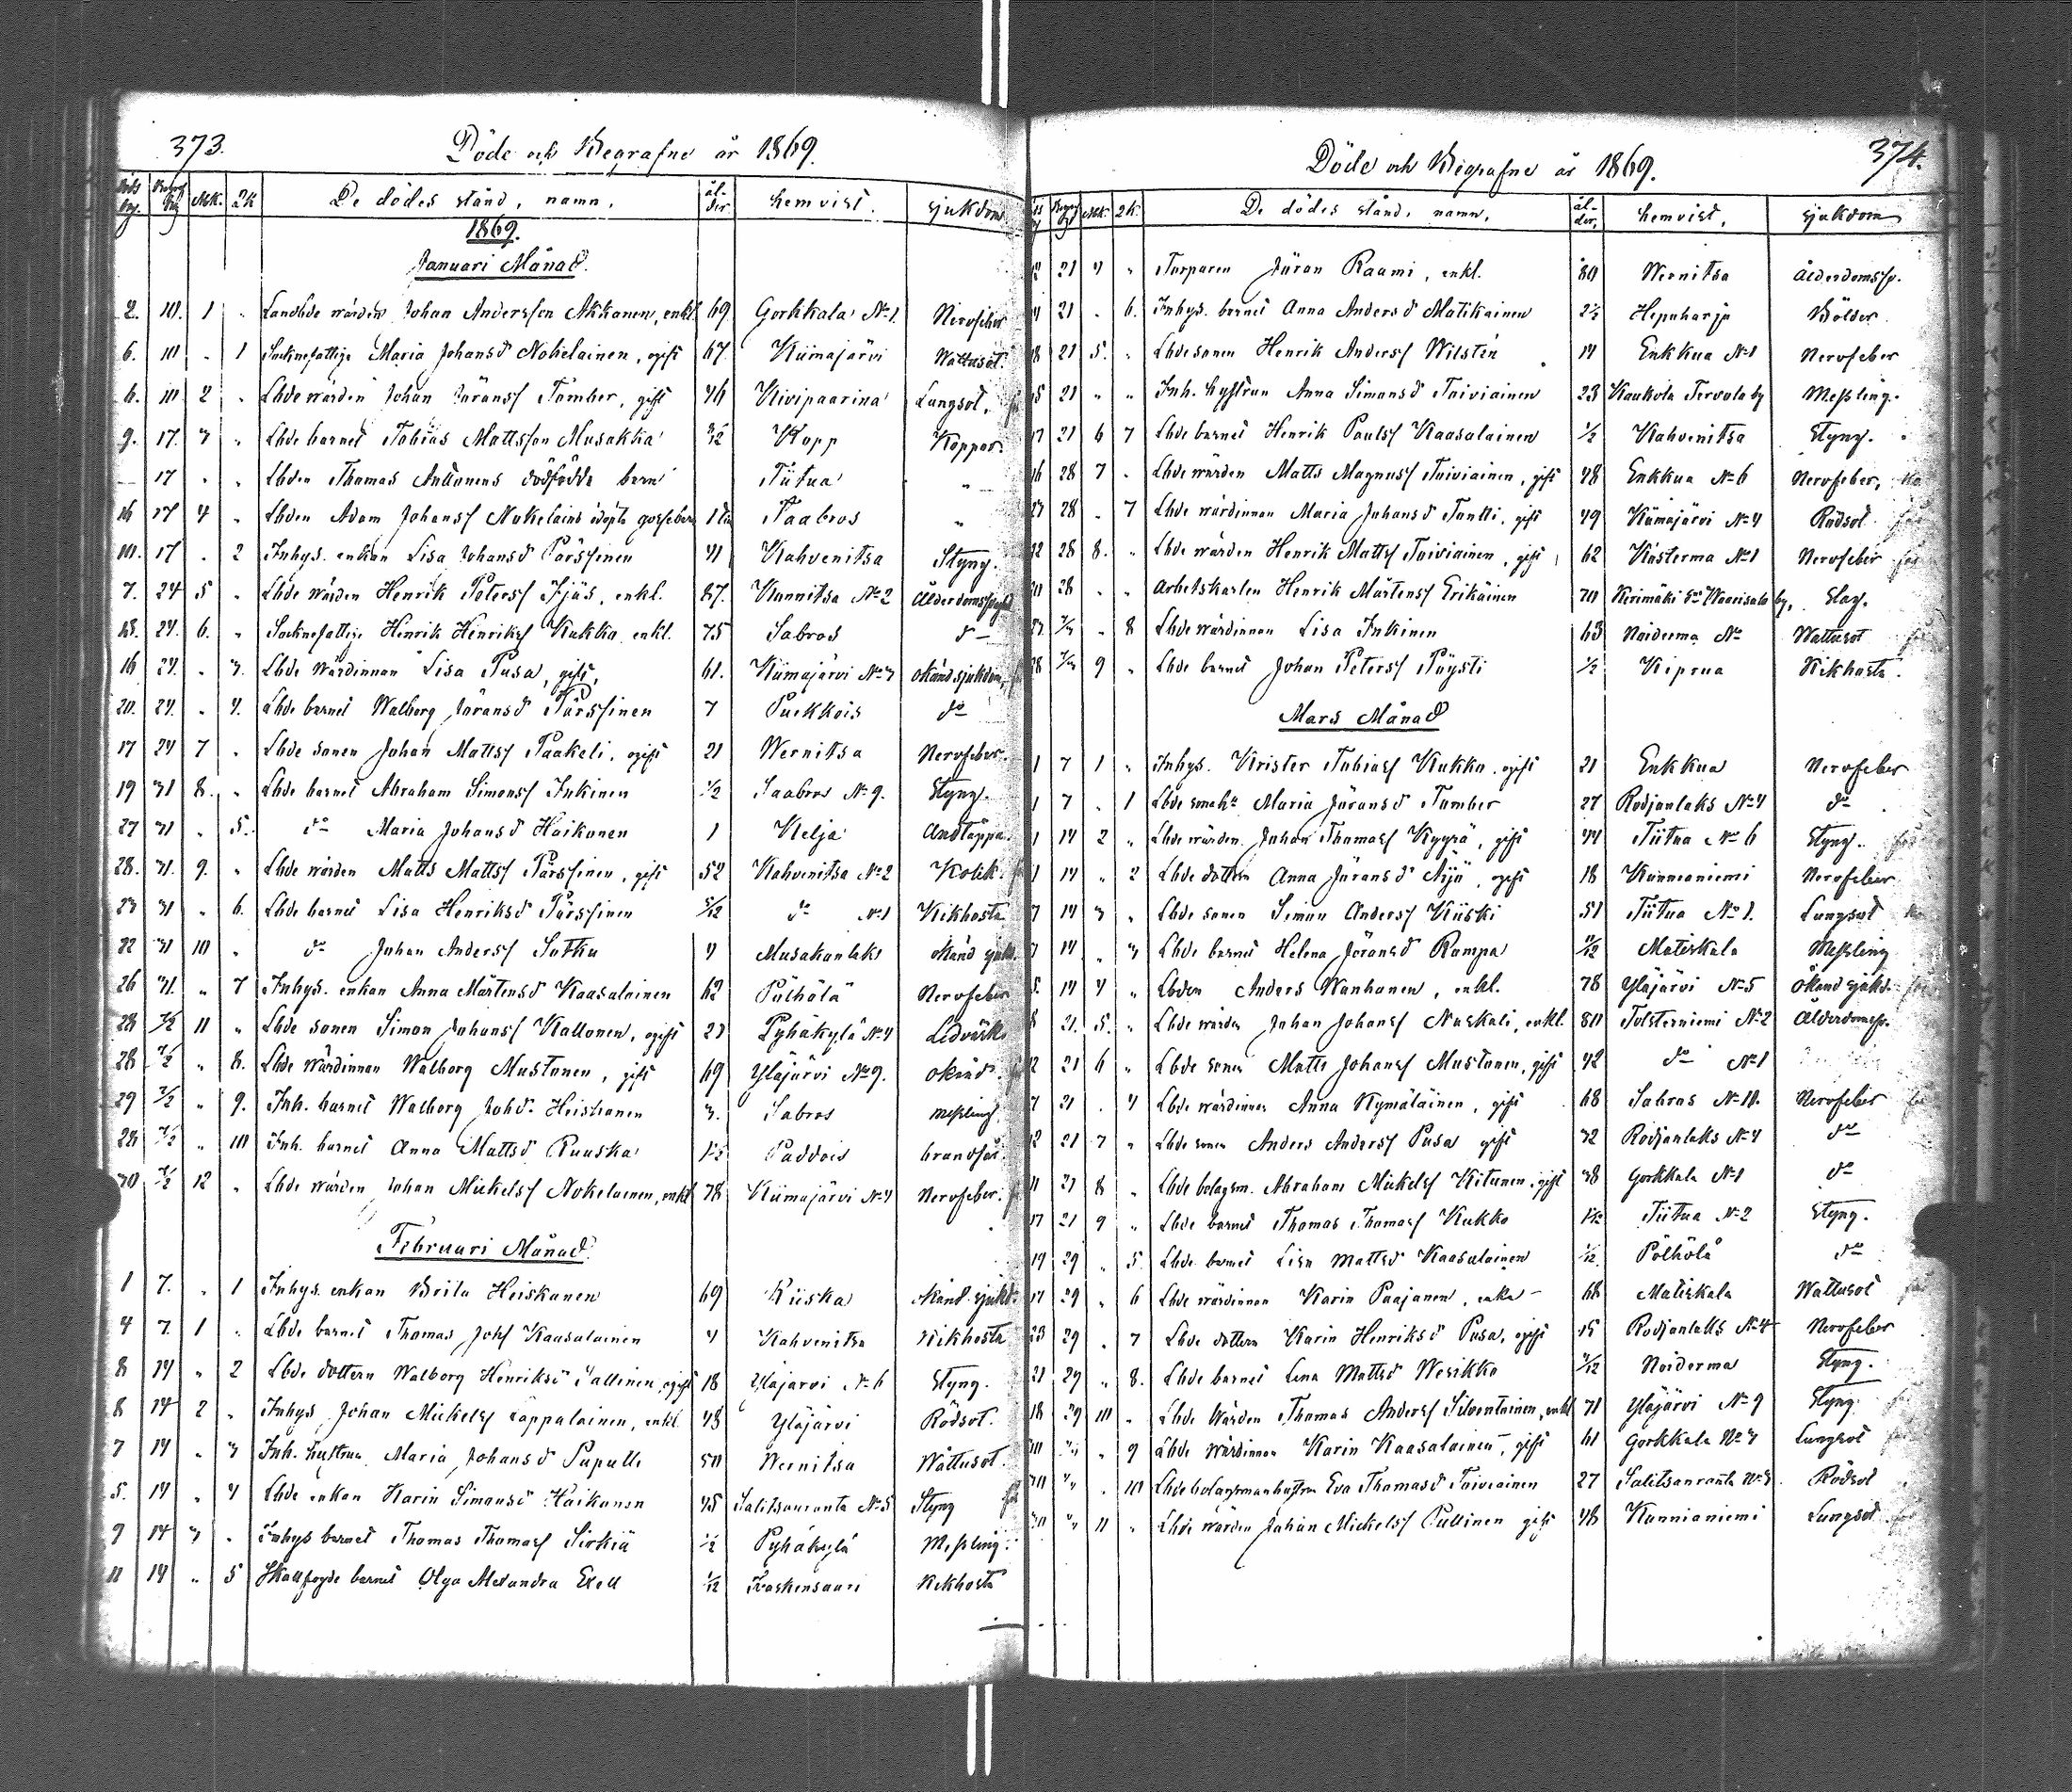 373.
Döde och Begrafne år 1869.
Mk. 2k De dödes stånd, namn. ål-der hemvist. sjukdom
1869.
Januari Månad.
2. 10. 1 " Landbde wärden Johan Andersson Akkanen, enkl. 69 Gorkkala No 1. Nervfeber
6. 10 " 1 Socknefattige Maria Johansd Nokelainen, ogift 67. Kiimajärvi Wattusot.
6. 10 2 " Lbde wärden Johan Göransf Tamber, gift 46 Kivipaarina Lungsot.
9. 17. 3 " Lbde barnet Tobias Mattsson Musakka Kopp Koppor
17 " " Lbden Thomas Anttonens dödfödde barn Tiitua "
16 17 4 " Lbden Adam Johansf Nokelains odöpta gossebarn 1 Taabros "
10. 17 . 2 Inhys. enkan Lisa Johansd Pärssinen 71 Kahvenitsa Styng.
7. 24 5 " Lbde wärden Henrik Petersf Ijäs, enkl. 87. Kunnitsa No 2
18. 24. 6. " Socknefattige Henrik Henriksf Kukko enkl. 75 Sabros do
16 24. " 3. Lbde wärdinnan Lisa Pusa, gift, 61. Kiimajärvi No 3 okänd sjukdom,
20. 24. " 4. Lbde barnet Walborg Göransd Pärssinen 7 Puikkois do
17 24 7 " Lbde sonen Johan Mattsf Paakeli, ogift 21 Wernitsa Nervfeber.
19 31 8. " Lbde barnet Abraham Simonsf Inkinen 1/2 Saabros No 9. Styng.
27 31 " 5. do Maria Johansd Haikonen 1 Kelja Andtäppa.
28. 31. 9. " Lbde wärden Matts Mattsf Pärssinen, gift 52 Kahvenitsa No 2 Kolik.
23 31 " 6. Lbde barnet Lisa Henriksd Pärssinen 5/12 do No 1 Kikhosta
22 31 10 " do Johan Andersf Sutku 4 Musakanlaks okänd sjukd.
26 31. " 7 Inhys. enkan Anna Mårtensd Kaasalainen 62 Pölhölä Nervfeber
28 7/2 11 " Lbde sonen Simon Johansf Kallonen, ogift 23 Pyhäkylä No 4 Ledvärk
28 7/2 " 8. Lbde wärdinnan Walborg Mustonen, gift 69 Yläjärvi No 9. okänd.
29 7/2 " 9. Inh. barnet Walborg Johd. Heiskanen 3. Sabros Messling
28 7/2 " 10 Inh. barnet Anna Mattsd Ruuska Paddois
30 7/2 12 " Lbde wärden Johan Mickelsf Nokelainen, enkl 78 Kiimajärvi No 4 Nervfeber.
Februari Månad.
1 7. " 1 Inhys. enkan Brita Heiskanen 69 Riiska okänd. sjukd.
4 7. 1 " Lbde barnet Thomas Johf Kaasalainen 4 Kahvenitsa Kikhosta
8 14 " 2 Lbde dottern Walborg Henriksd Pullinen, ogift 18 Yläjärvi No 6 Styng.
8 14 2 " Inhys Johan Mickelsf Lappalainen, enkl. 48 Yläjärvi Rödsot.
7 14 " 3 Inh. hustrun Maria Johansd Puputti 50 Wernitsa Wattusot.
5. 14 " 4 Lbde enkan Karin Simonsd Haikonen 45 Salitsanranta No 5 Styng
9 14 3 " Inhys barnet Thomas Thomasf Sirkiä 1/2 Pyhäkylä Messling.
11 14 " 5 Skallfogde barnet Olga Alexandra Exell 1/12 Koskensaari Kikhosta
374.
Döde och Begrafne år 1869.
Mk. 2k. De dödes stånd, namn. ål-der, hemvist. sjukdom
21 4 " Torparen Jöran Raami, enkl. 80 Wernitsa
21 " 6. Inhys. barnet Anna Andersd Matikainen 2 1/2 Hepoharju Bölder.
21 5. " Lbde sonen Henrik Andersf Wilsten 14 Enkkua No 1 Nervfeber
21 " " Inh. hustrun Anna Simonsd Toiviainen 23 Kaukola Tervola by Messling.
21 6 7 Lbde barnet Henrik Paulsf Kaasalainen 1/2 Kahvenitsa Styng.
16 28 7 " Lbde wärden Matts Magnusf Toiviainen, gift 48 Enkkua No 6 Nervfeber,
28 " 7 Lbde wärdinnan Maria Johansd Tontti, gift 49 Kiimajärvi No 4 Rödsot
22 28 8. " Lbde wärden Henrik Mattsf Toiviainen, gift 62 Kasterma No 1 Nervfeber
28 " " Arbetskarlen Henrik Mårtensf Erikäinen 70 Kerimäki Sn Waarisalo by, Slag.
" 8 Lbde wärdinnan Lisa Inkinen 63 Noiderma No Wattusot
28 9 " Lbde barnet Johan Petersf Pöysti 1/2 Kiprua Kikhosta.
Mars Månad
1 7 1 " Inhys. Krister Tobiasf Kukko, ogift 21 Enkkua Nervfeber
1 7 " 1 Lbde Maria Göransd Tamber 27 Rodjanlaks No 4 do
1 14 2 " Lbde wärden Johan Thomasf Kyyrä, gift 44 Tiitua No 6 Styng.
1 14 " 2 Lbde dottern Anna Göransd Äijö, ogift 18 Kunnianiemi Nervfeber
7 14 3 " Lbde sonen Simon Andersf Kiiski 51 Tiitua No 1. Lungsot
14 " 3 Lbde barnet Helena Jöransd Rampa Matiskala Messling
5. 14 4 " Lbden Anders Wanhanen, enkl. 78 Yläjärvi No 5 Okänd sjukd.
8 21. 5. " Lbde wärden Johan Johansf Naskali, enkl. 80 Tolsterniemi No 2
2 21 6 " Lbde sonen Matts Johansf Mustonen, gift 42 do No 1
7 21 . 4 Lbde wärdinnan Anna Kymäläinen, gift 68 Sabros No 10. Nervfeber
12 21 7 " Lbde sonen Anders Andersf Pusa gift 32 Rodjanlaks No 4 do
11 21 8 " Lbde bolagsm. Abraham Mickelsf Kitunen, gift 38 Gorkkala No 1 do
17 21 9 " Lbde barnet Thomas Thomasf Kukko Tiitua No 2 Styng.
19 29 " 5. Lbde barnet Lisa Mattsd Kaasalainen Pölhölä do
17 29 " 6 Lbde wärdinnan Karin Paajanen, enka 68 Matiskala Wattusot
23 29 . 7 Lbde dottern Karin Henriksd Pusa, ogift 15 Rodjanlaks No 4 Nervfeber
21 29 " 8. Lbde barnet Lena Mattsd Wesikko Noiderma Styng.
18 29 10 " Lbde wärden Thomas Andersf Silventoinen, enkl 71 Yläjärvi No 9 Styng
" 9 Lbde wärdinnan Karin Kaasalainen, gift 61 Gorkkala No 3 Lungsot
30 . 10 Lbde bolagsmanhustrun Eva Thomasd Toiviainen 27 Salitsanranta No 3. Rödsot
30 11 " Lbde wärden Johan Mickelsf Pullinen gift 48 Kunnianiemi Lungsot